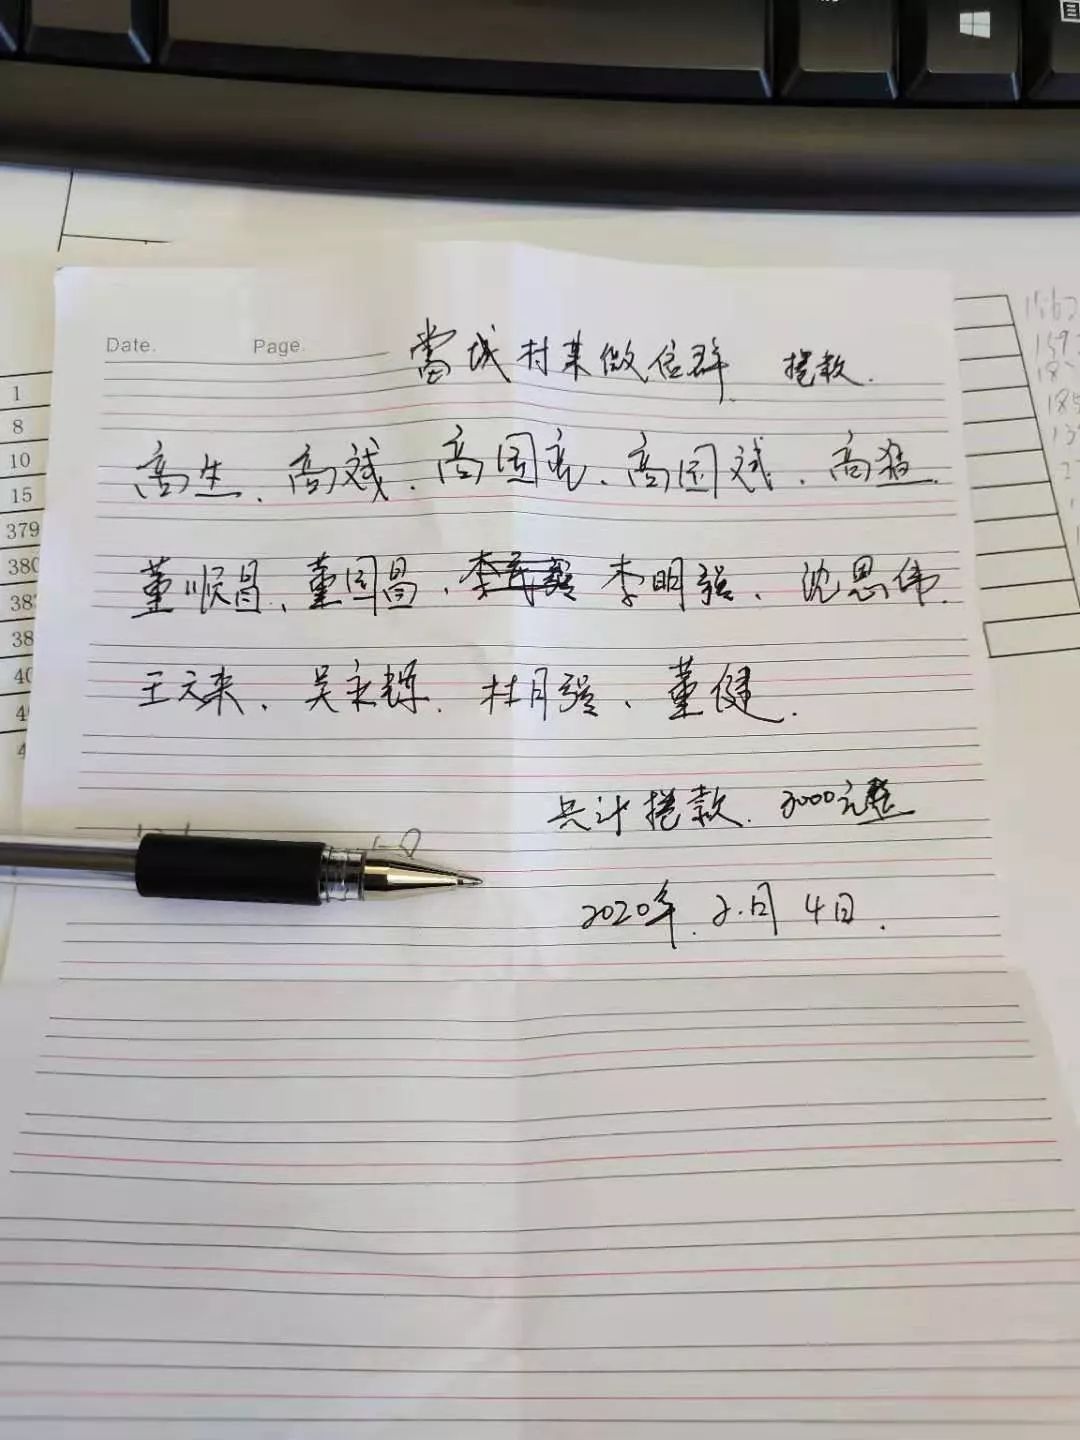 Date. Page.
當城村某微信群 捲款.
高生、高斌、高国亮、高国斌、高猛.
董顺昌、董国昌、李明强、沈思伟.
王文来、吴永辉、杜月强、董健.
共计捲款.3000元整
2020年.2.月4日.
1
8
10
15
379
380
38
38
40
4